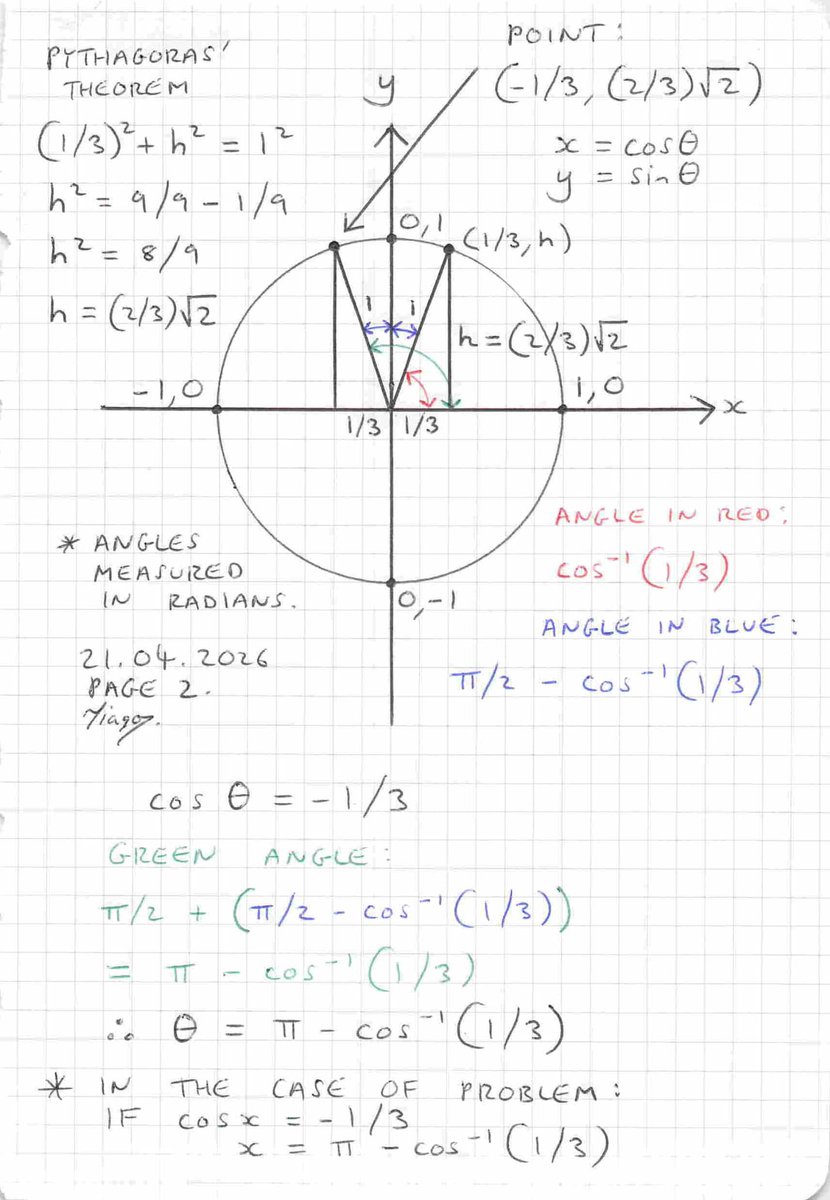 PYTHAGORAS'
THEOREM
(1/3)² + h² = 1²
h² = 9/9 - 1/9
h² = 8/9
h = (2/3)√2
POINT:
(-1/3, (2/3)√2)
x = cosθ
y = sinθ
y
0,1
(1/3, h)
1
1
h = (2/3)√2
-1,0
1,0
x
1/3
1/3
0,-1
* ANGLES
MEASURED
IN RADIANS.
21.04.2026
PAGE 2.
ANGLE IN RED:
cos⁻¹(1/3)
ANGLE IN BLUE:
π/2 - cos⁻¹(1/3)
cos θ = -1/3
GREEN ANGLE:
π/2 + (π/2 - cos⁻¹(1/3))
= π - cos⁻¹(1/3)
∴ θ = π - cos⁻¹(1/3)
* IN THE CASE OF PROBLEM:
IF cosx = -1/3
x = π - cos⁻¹(1/3)